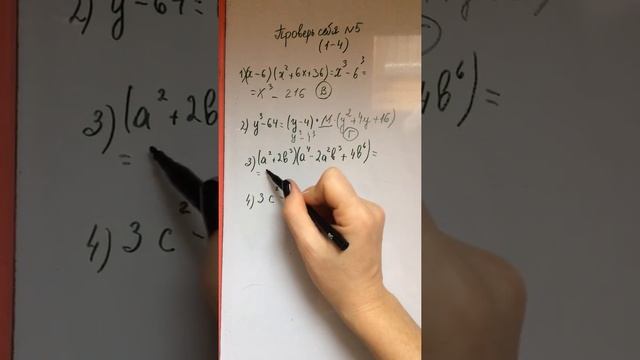 Проверь себя №5
(1-4)
1)(x-6)(x²+6x+36)=x³-6³=
=x³-216 (В)
2) y³-64=(y-4)·M (y²+4y+16)
(Г)
3)(a²+2b³)(a⁴-2a²b³+4b⁶)=
=
4) 3c²
2) y-64=
3)(a²+2b
=
4b⁶)=
4) 3c²-